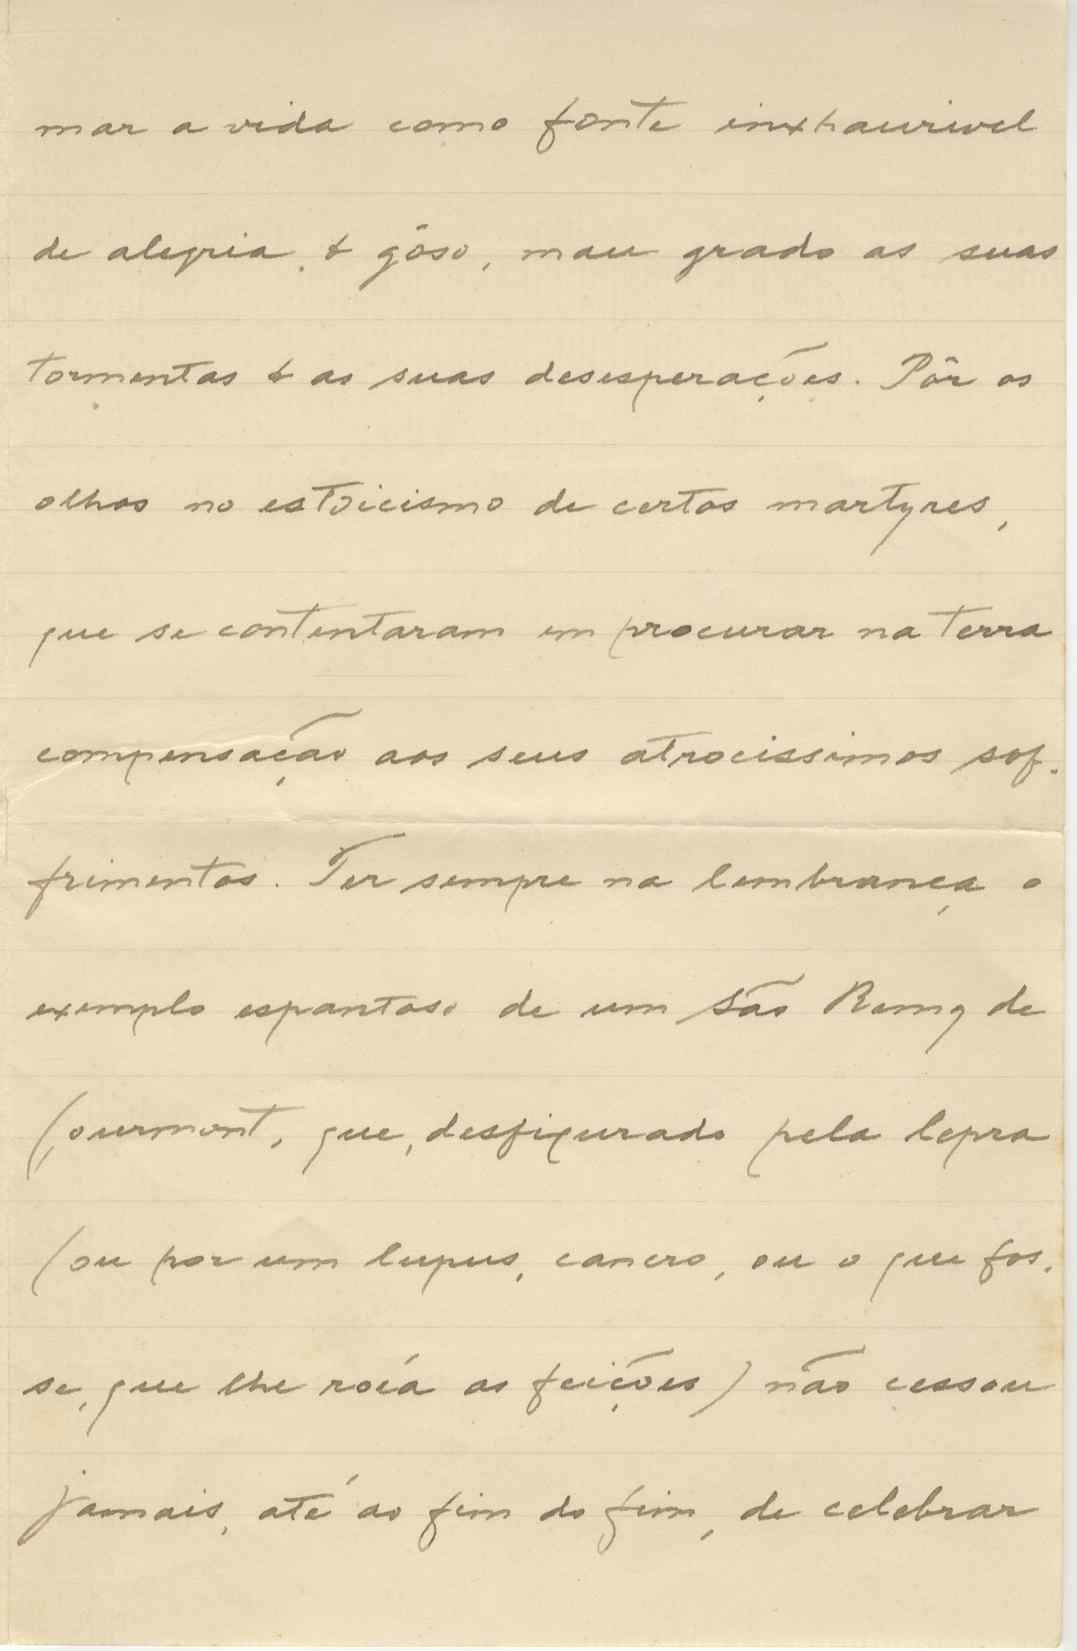 mar a vida como fonte inexhaurivel
de alegria & gôso, mau grado as suas
tormentas & as suas desesperações. Pôr os
olhos no estoicismo de certos martyres,
que se contentaram em procurar na terra
compensação aos seus atrocissimos sof-
frimentos. Ter sempre na lembrança o
exemplo espantoso de um São Remy de
Gourmont, que, desfigurado pela lepra
(ou por um lupus, cancro, ou o que fos-
se, que lhe roía as feições) não cessou
jamais, até ao fim do fim, de celebrar